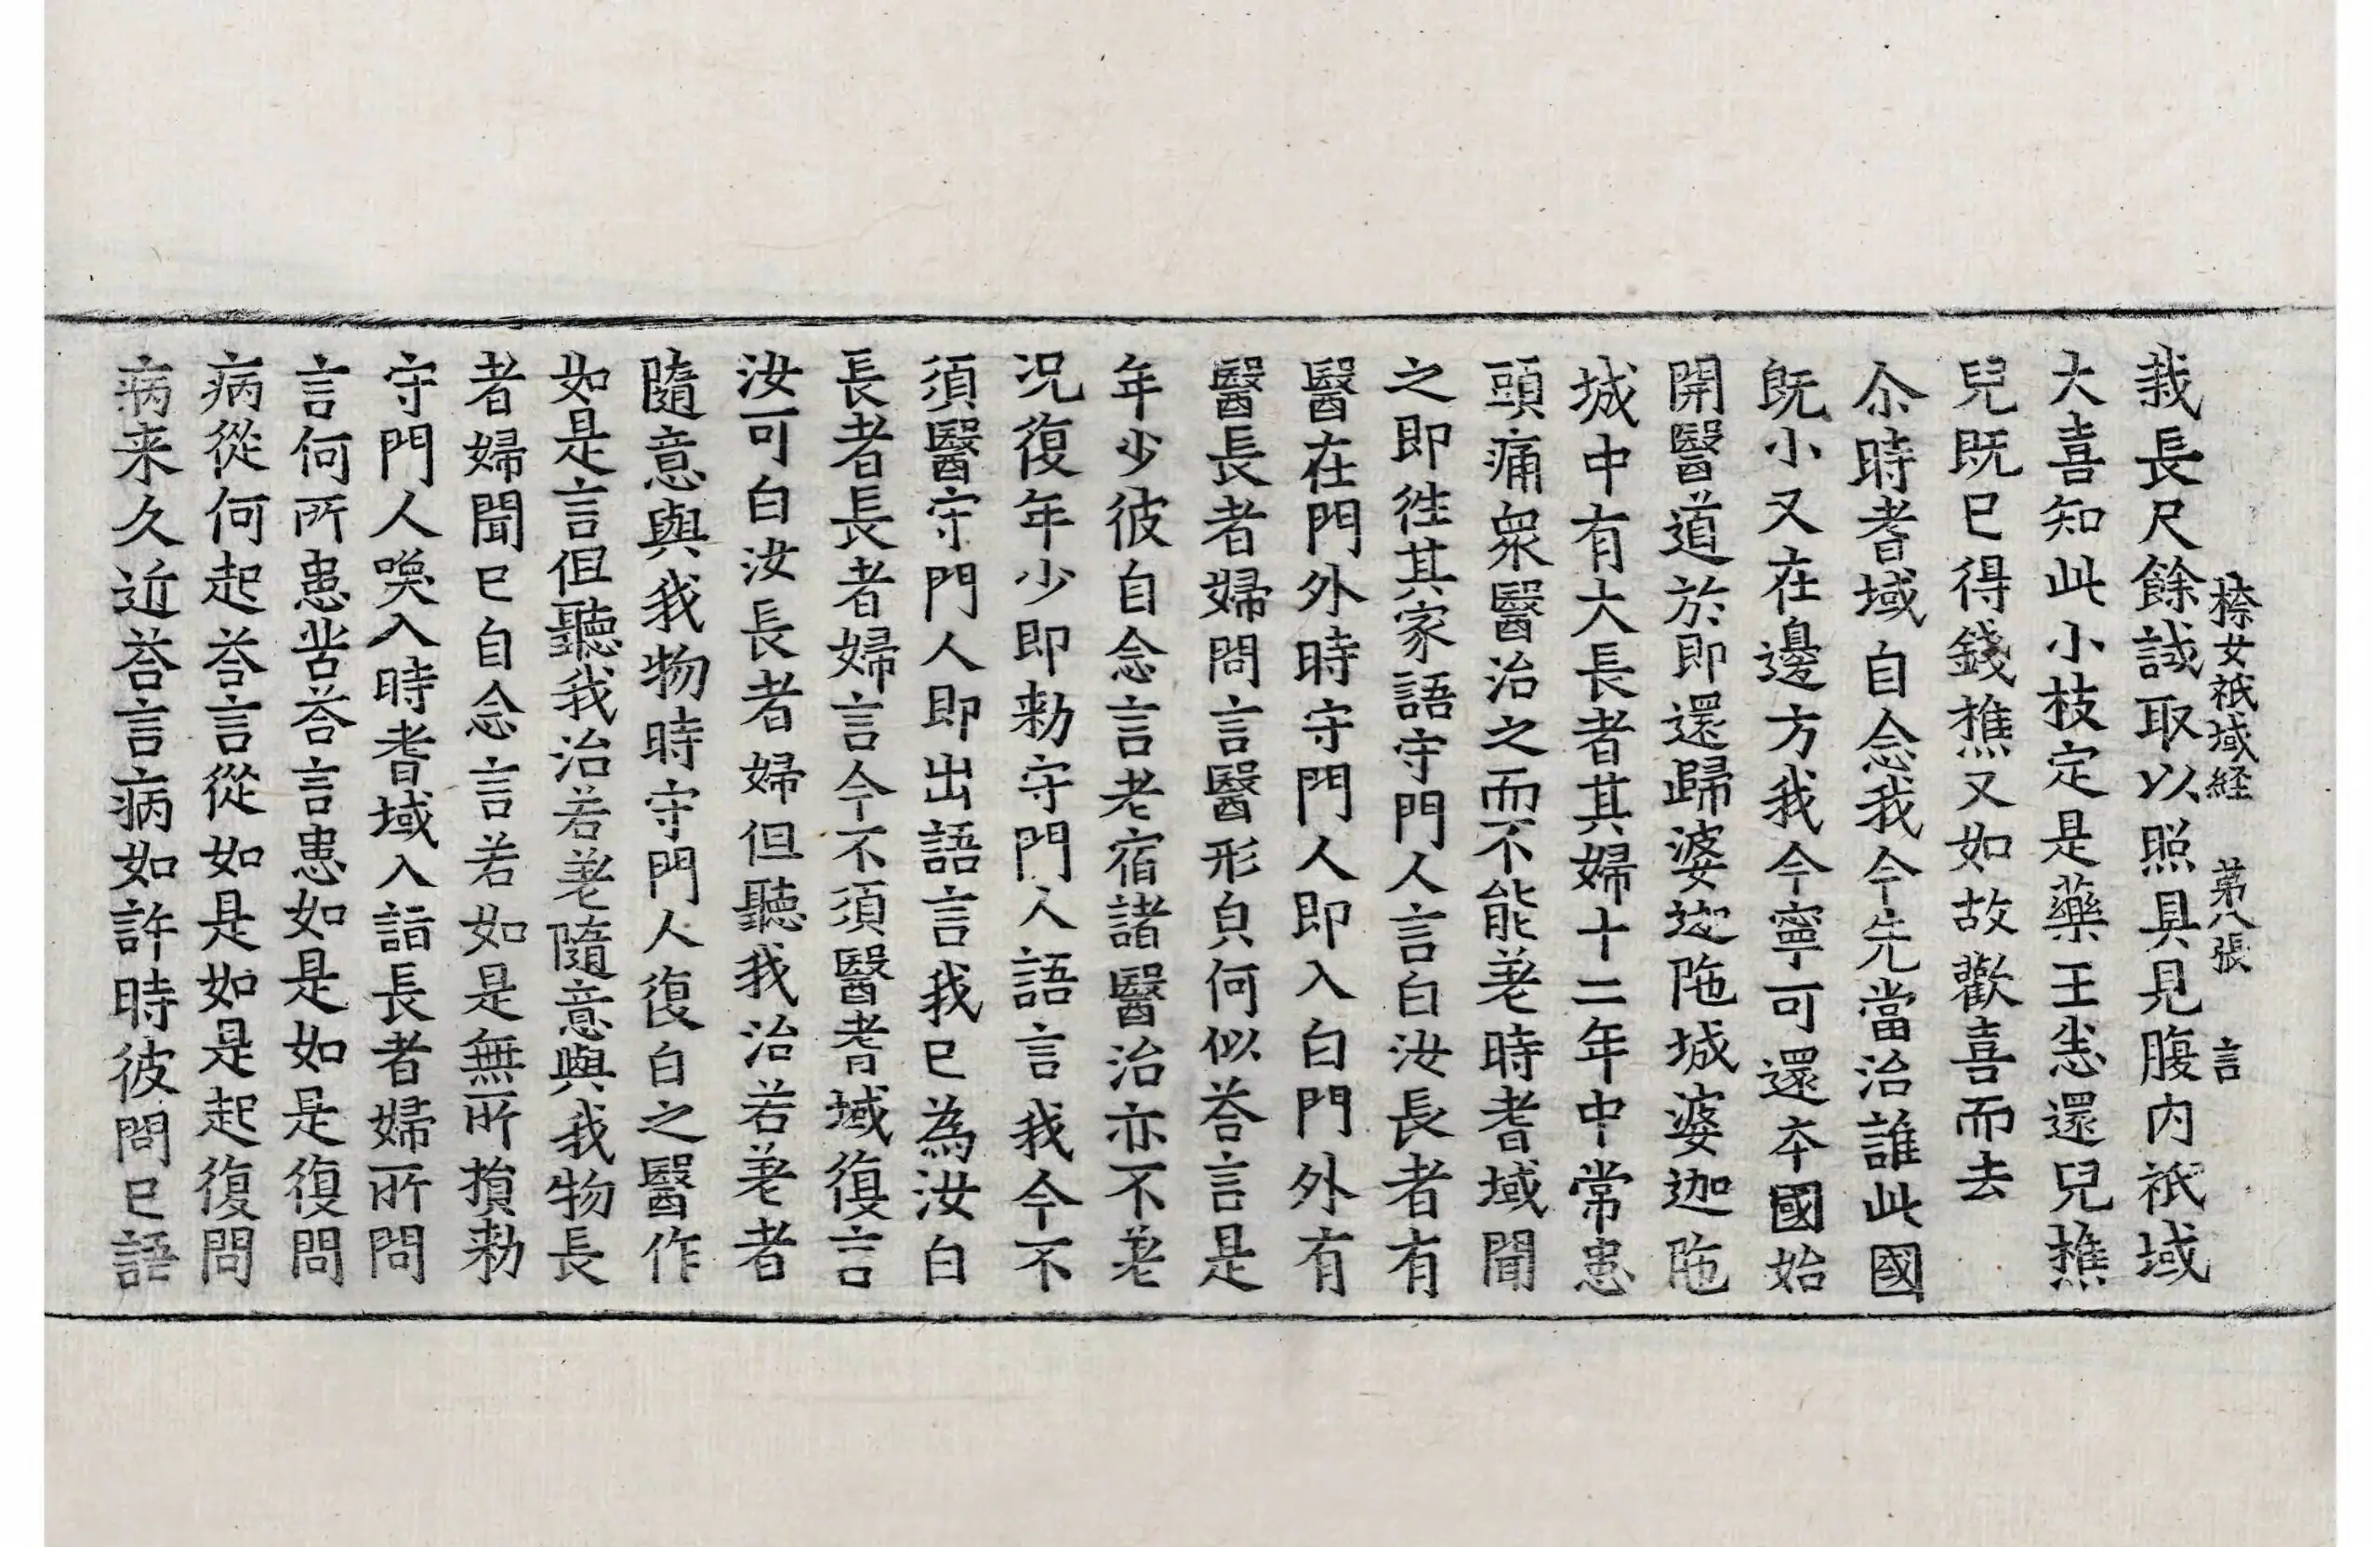 㮈女祇域経 第八張 言
栽長尺餘試取以照具見腹内祇域
大喜知此小枝定是藥王悉還兒樵
兒既已得錢樵又如故歡喜而去
尒時耆域自念我今先當治誰此國
既小又在邊方我今寧可還本國始
開醫道於即還歸婆迦陁城婆迦陁
城中有大長者其婦十二年中常患
頭痛衆醫治之而不能差時耆域聞
之即徃其家語守門人言白汝長者有
醫在門外時守門人即入白門外有
醫長者婦問言醫形皃何似荅言是
年少彼自念言老宿諸醫治亦不差
况復年少即勑守門人語言我今不
須醫守門人即出語言我已為汝白
長者長者婦言今不須醫耆域復言
汝可白汝長者婦但聽我治若差者
隨意與我物時守門人復白之醫作
如是言但聽我治若差隨意與我物長
者婦聞已自念言若如是無所損勑
守門人喚入時耆域入詣長者婦所問
言何所患苦荅言患如是如是復問
病從何起荅言從如是如是起復問
病来久近荅言病如許時彼問已語